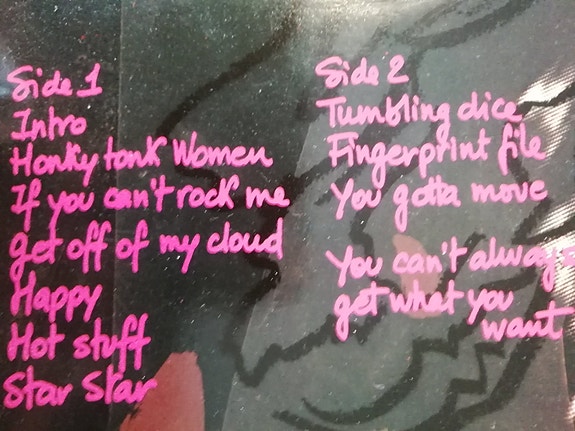 Side 1
Intro
Honky tonk Women
If you can't rock me
get off of my cloud
Happy
Hot stuff
Star Star
Side 2
Tumbling dice
Fingerprint file
You gotta move
You can't always
get what you
want